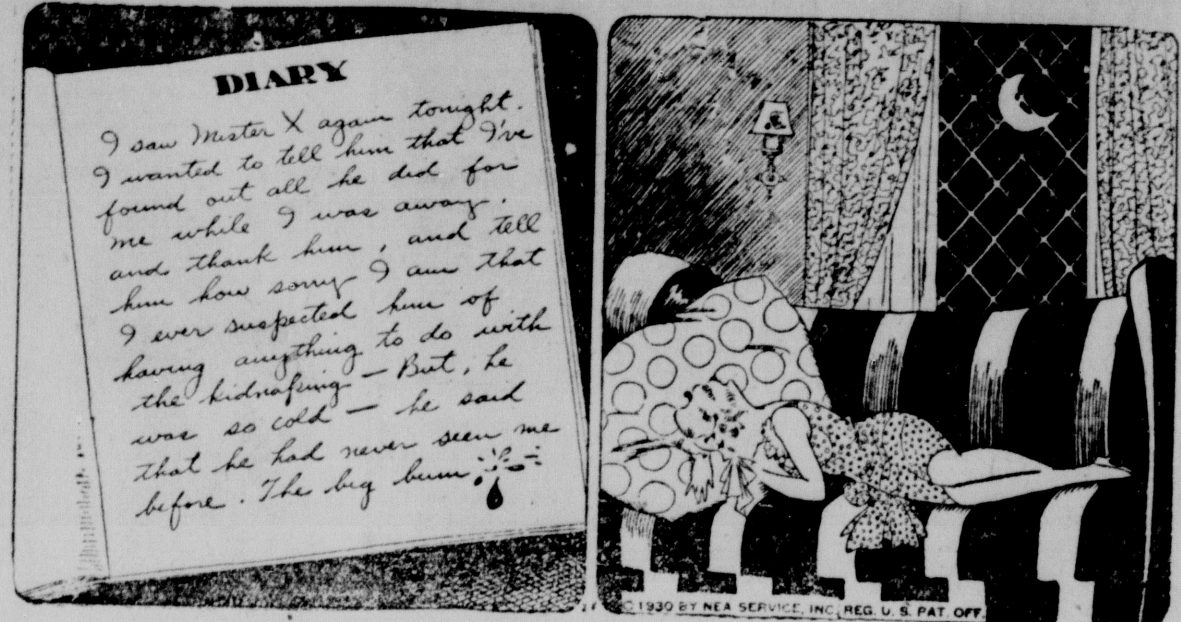 DIARY
I saw Mister X again tonight.
I wanted to tell him that I've
found out all he did for
me while I was away.
and thank him, and tell
him how sorry I am that
I ever suspected him of
having anything to do with
the kidnaping — But, he
was so cold — he said
that he had never seen me
before. The big bum
© 1930 BY NEA SERVICE, INC. REG. U. S. PAT. OFF.